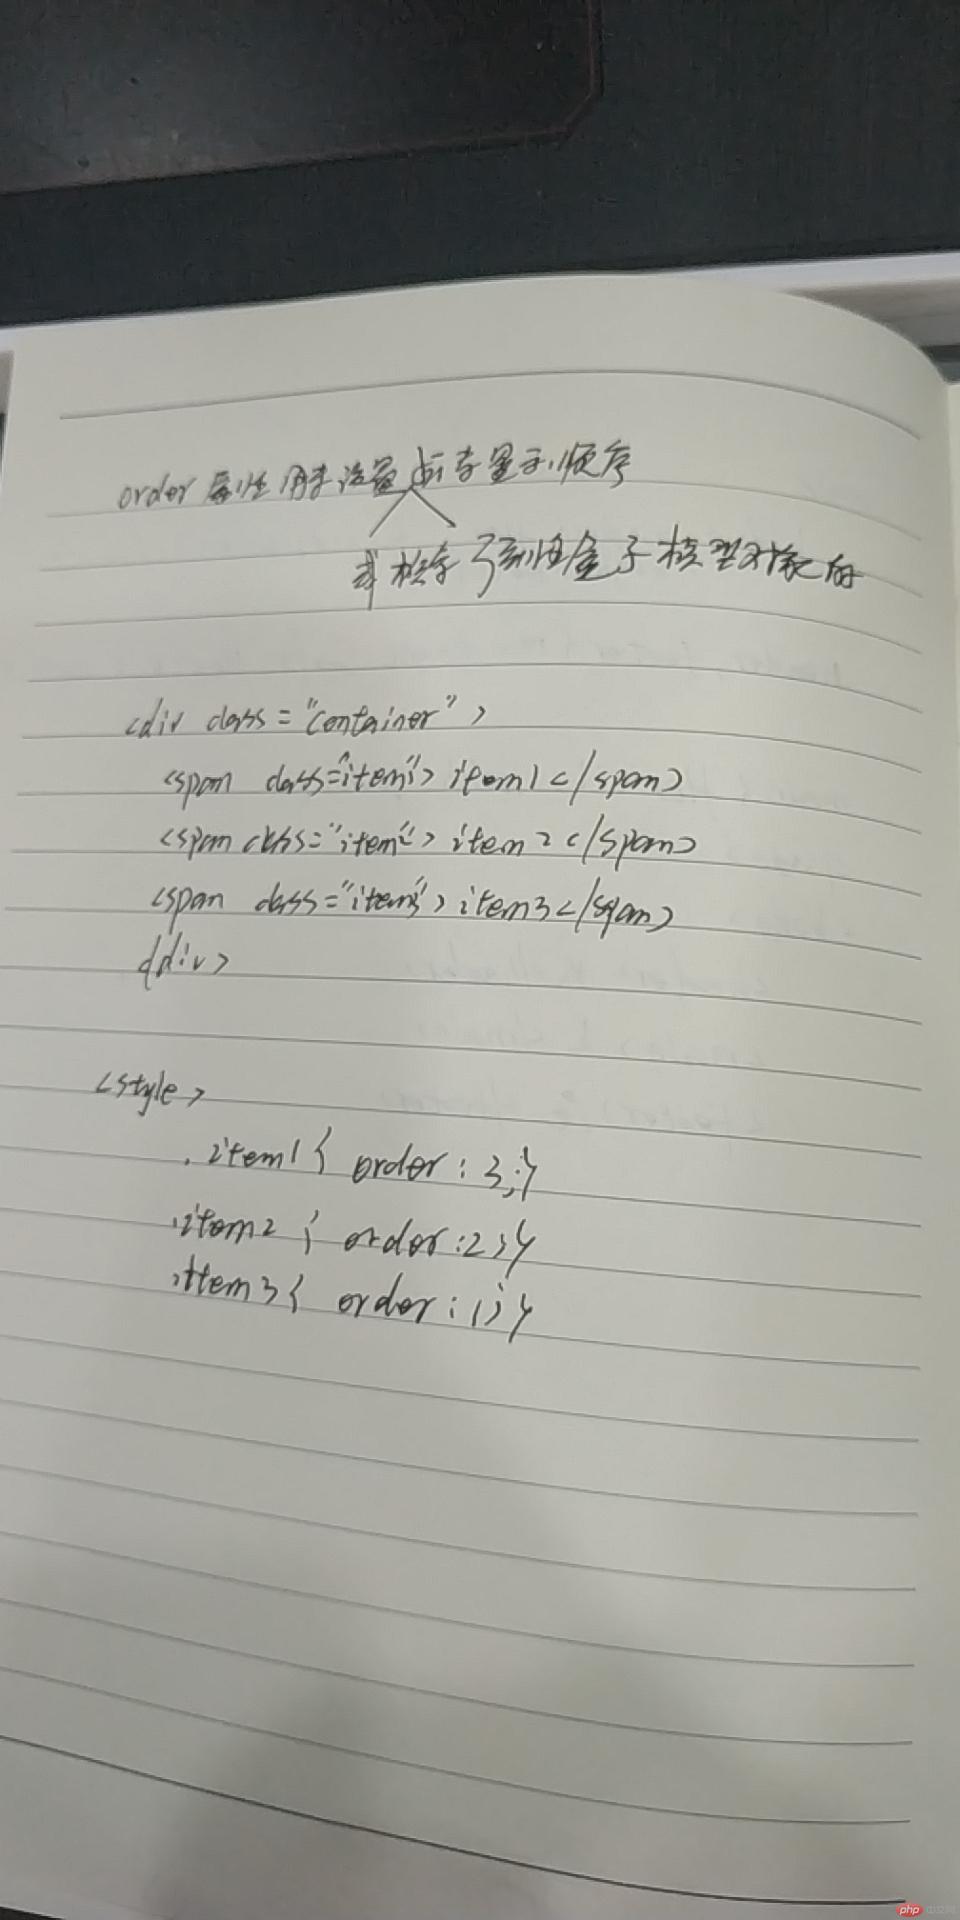 order 属性用来设置 显示顺序
或 弹性盒子模型对象的
<div class="container">
<span class="item1">item1</span>
<span class="item2">item2</span>
<span class="item3">item3</span>
<div>
<style>
.item1{ order:3;}
.item2{ order:2;}
.item3{ order:1;}
php